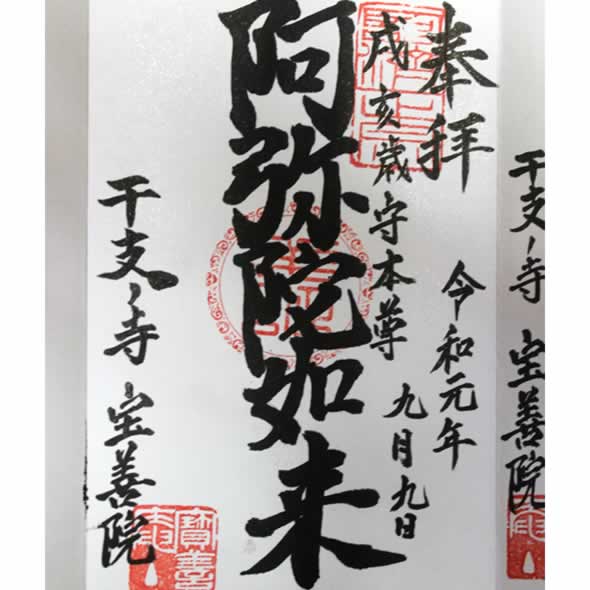 奉拝
令和元年
九月九日
戌亥歳守本尊
阿弥陀如来
干支ノ寺 宝善院
干支ノ寺 宝善院